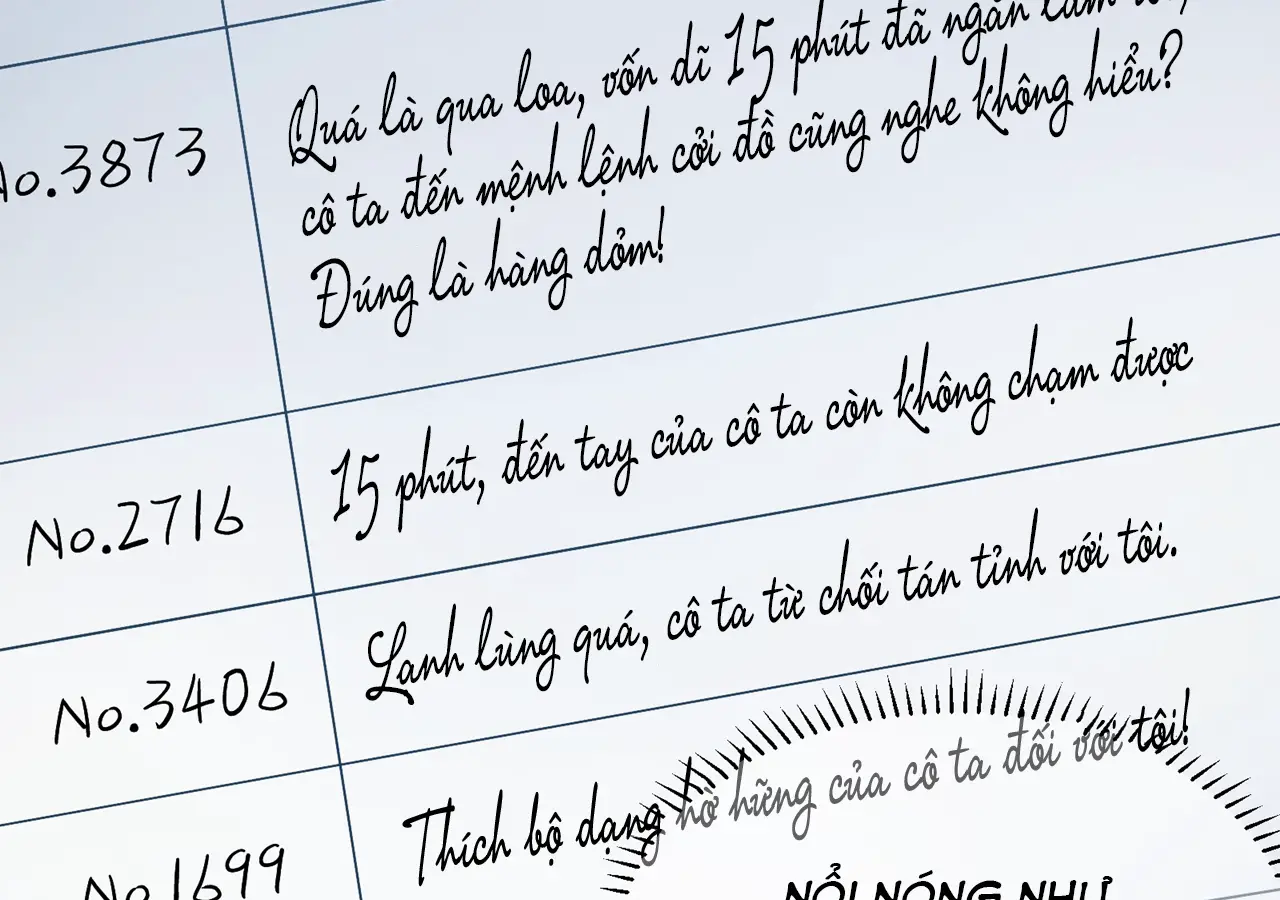 No.3873
Quá là qua loa, vốn dĩ 15 phút đã ngắn
cô ta đến mệnh lệnh cởi đồ cũng nghe không hiểu?
Đúng là hàng dỏm!
No.2716
15 phút, đến tay của cô ta còn không chạm được
No.3406
Lạnh lùng quá, cô ta từ chối tán tỉnh với tôi.
No.1699
Thích bộ dạng hờ hững của cô ta đối với tôi!
NỔI NÓNG NHƯ